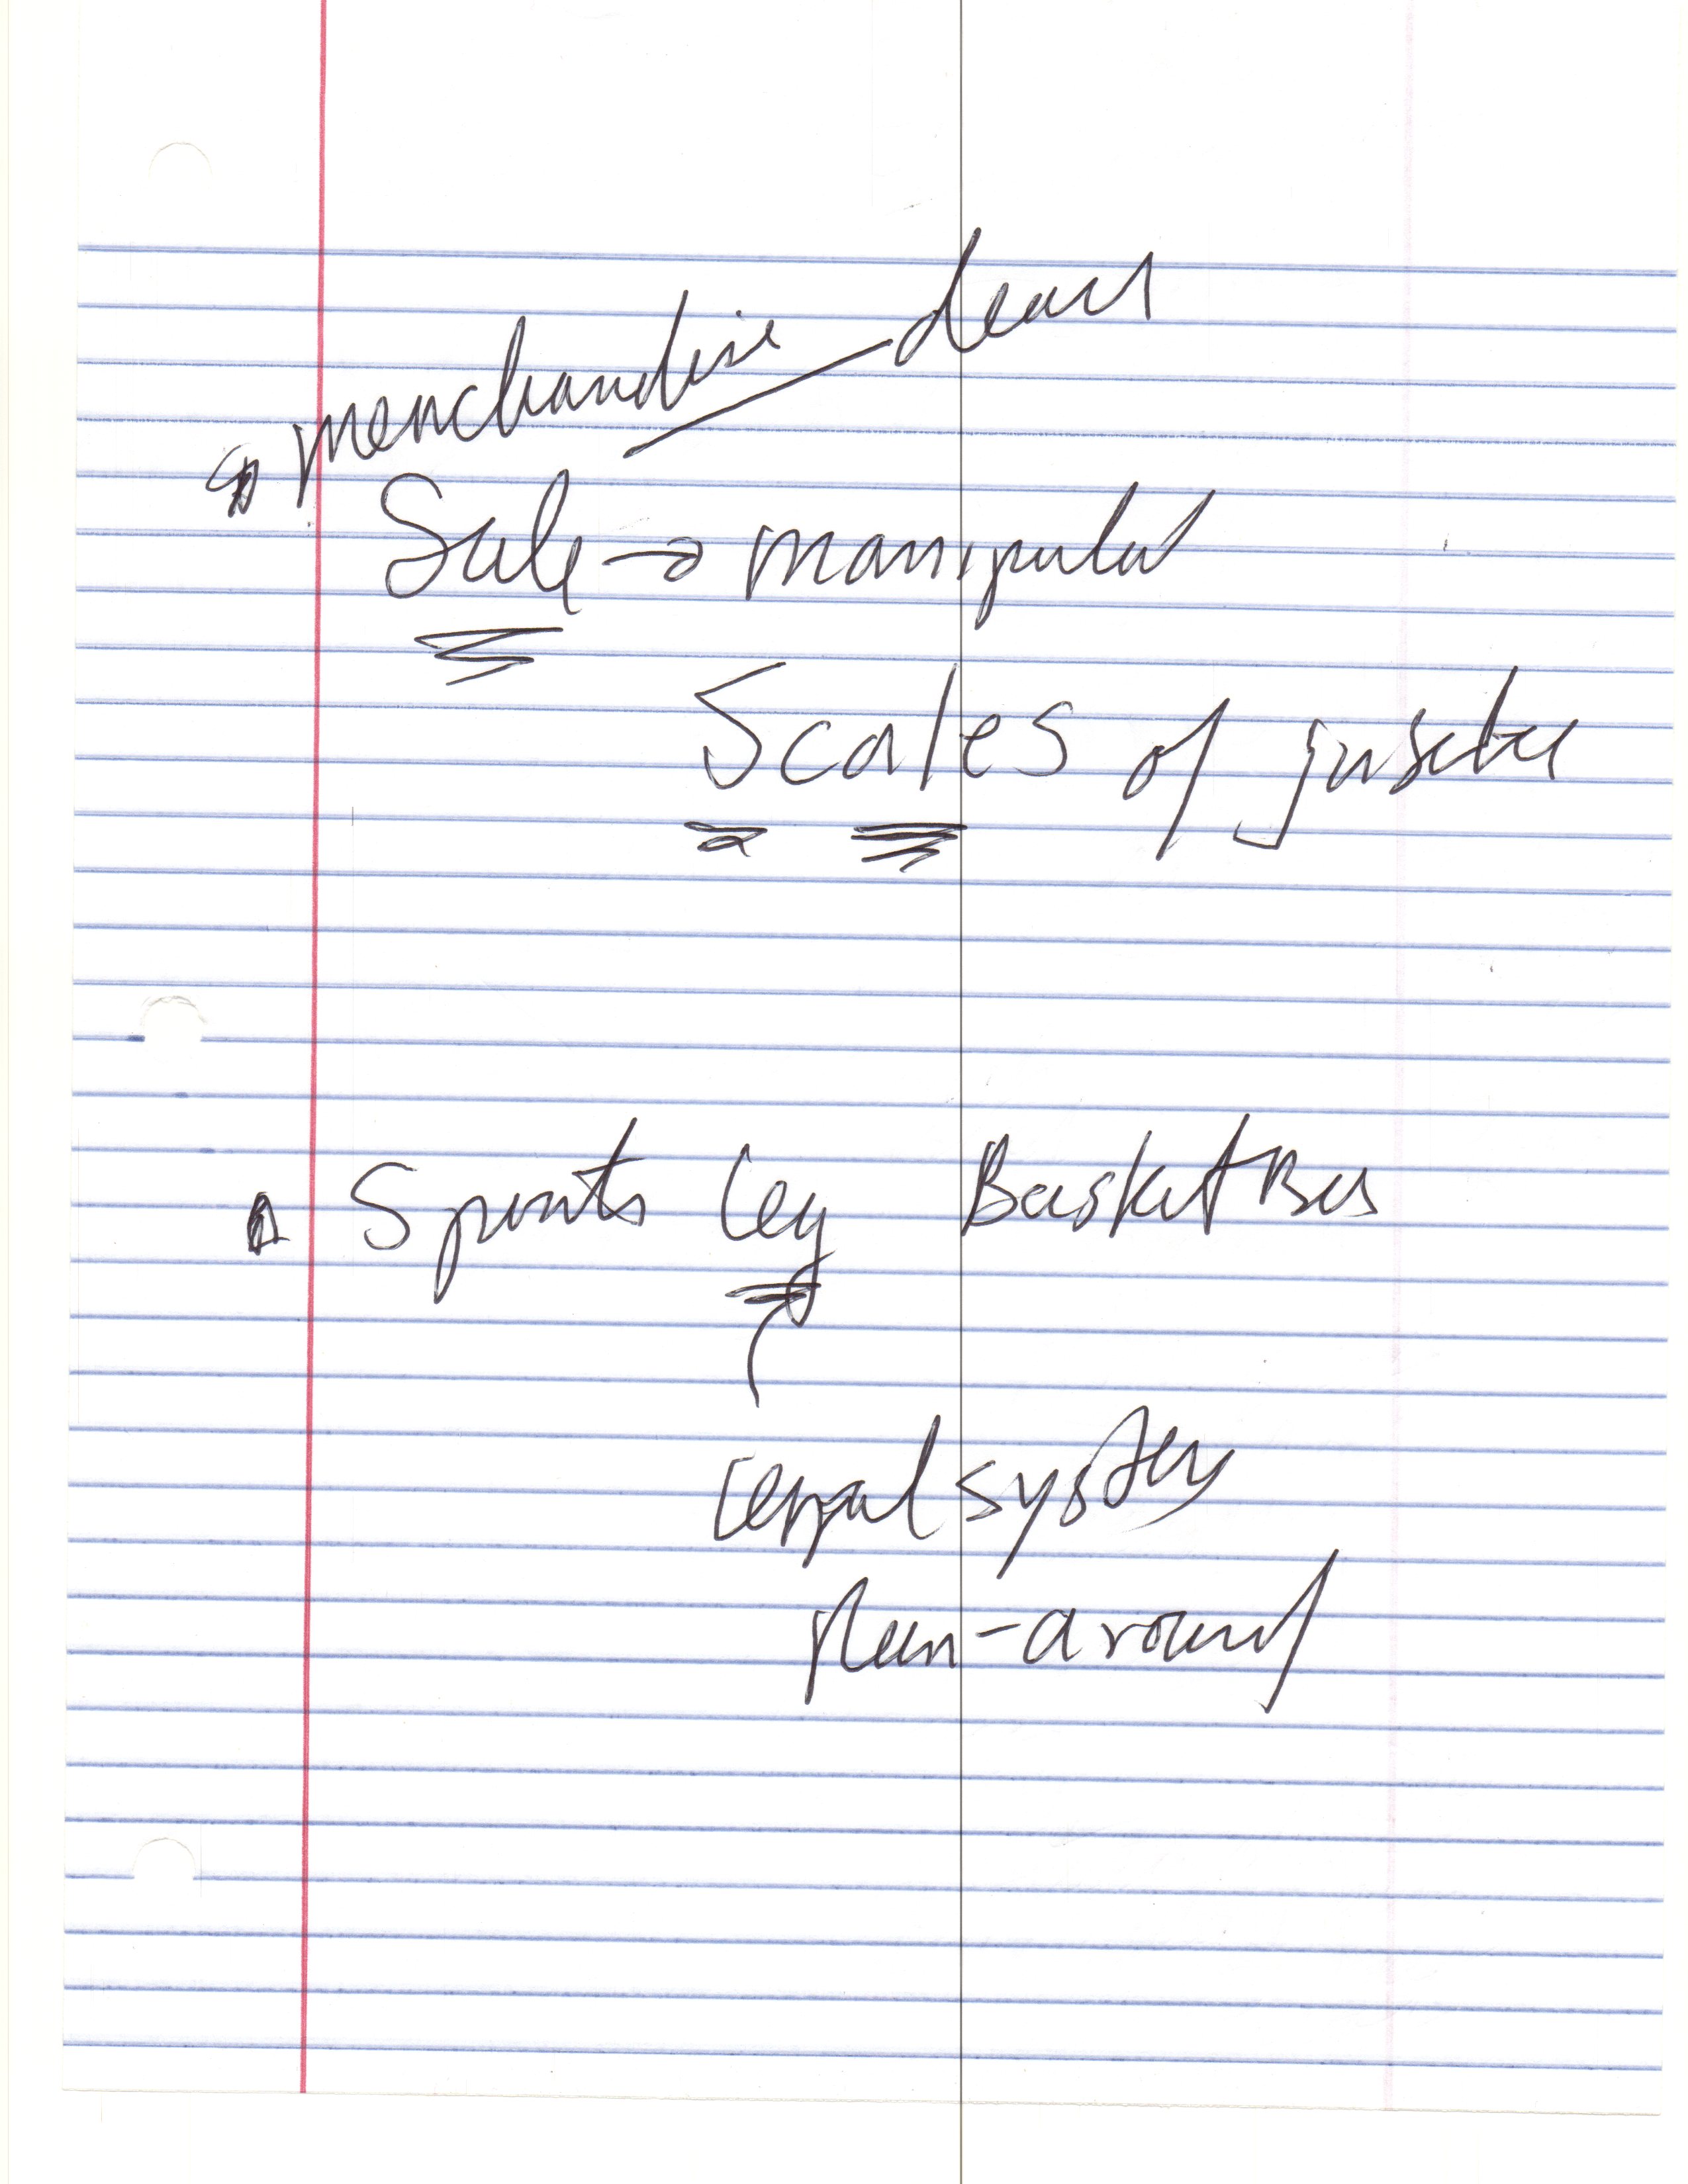 merchandise
Sale → manipulat
Scales of justice
Sports leg Basket
legal system
Run-around